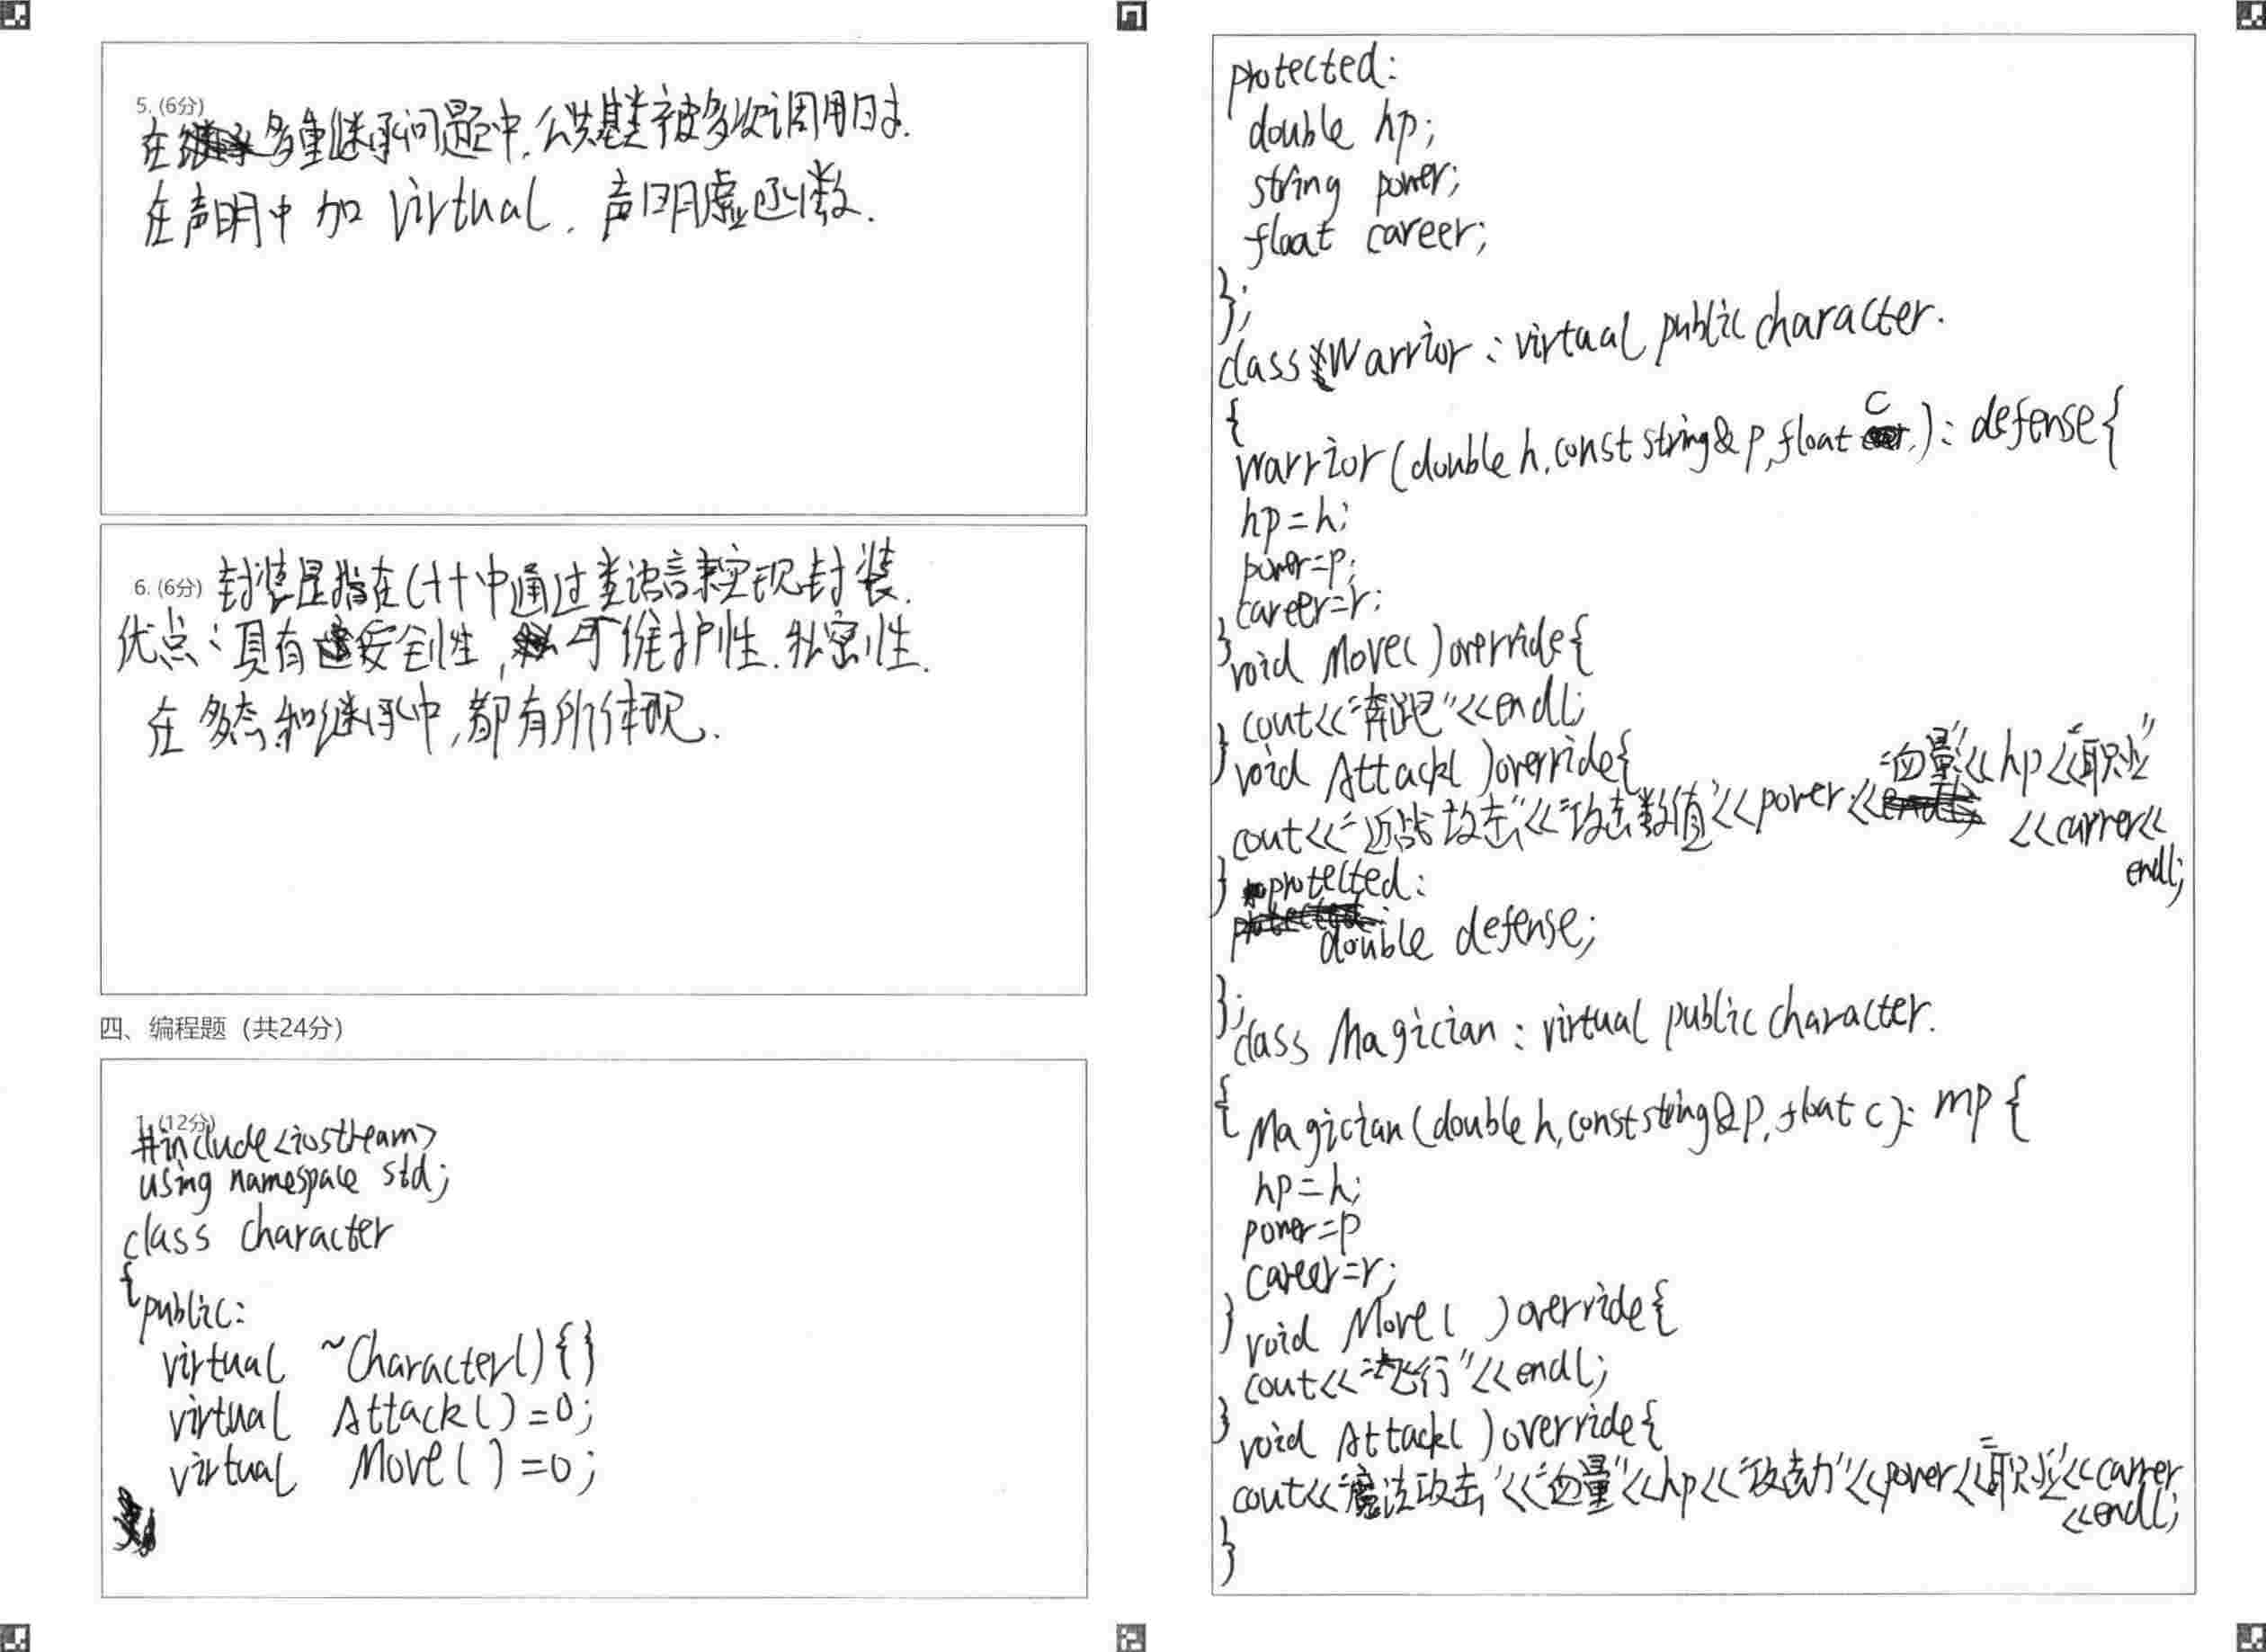 5. (6分)
在多重继承问题中,公共基类被多次调用时.
在声明中加 virtual. 声明虚函数.
6. (6分) 封装是指在C++中通过类语言来实现封装.
优点:具有安全性,可维护性.私密性.
在多态和继承中,都有所体现.
四、编程题（共24分）
1. (12分)
#include<iostream>
using namespace std;
class character
{
public:
virtual ~Character(){}
virtual Attack()=0;
virtual Move()=0;
protected:
double hp;
string power;
float career;
};
class Warrior: virtual public character.
{
Warrior(double h,const string& p,float c): defense{
hp=h;
power=p;
career=r;
}
void Move()override{
cout<<"奔跑"<<endl;
}
void Attack()override{
cout<<"近战攻击"<<"攻击数值"<<power<<"血量"<<hp<<"职业"
<<carrer<<
endl;
} protected:
double defense;
};
class Magician: virtual public character.
{ Magician(double h,const string& p,float c): mp{
hp=h;
power=p
career=r;
}
void Move( )override{
cout<<"飞行"<<endl;
}
void Attack( )override{
cout<<"魔法攻击"<<"血量"<<hp<<"攻击力"<<power<<"职业"<<carrer
<<endl;
}